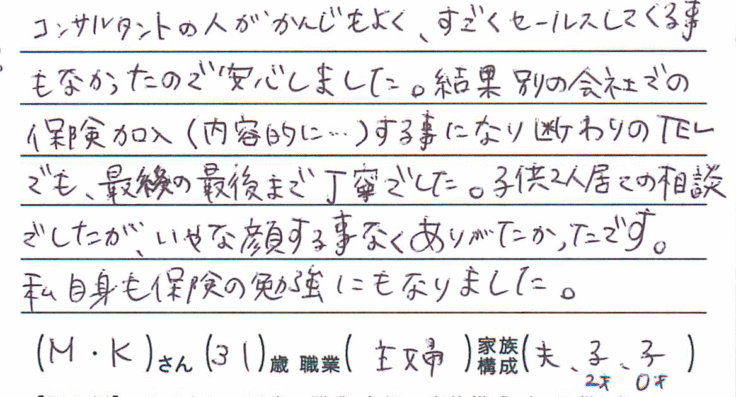 コンサルタントの人がかんじもよく、すごくセールスしてくる事
もなかったので安心しました。結果 別の会社での
保険加入（内容的に…）する事になり断わりのTEL
でも、最後の最後まで丁寧でした。子供2人居ての相談
でしたが、いやな顔する事なくありがたかったです。
私自身も保険の勉強にもなりました。
(M・K)さん (31)歳 職業( 主婦 )家族構成(夫、子、子 )
2才 0才